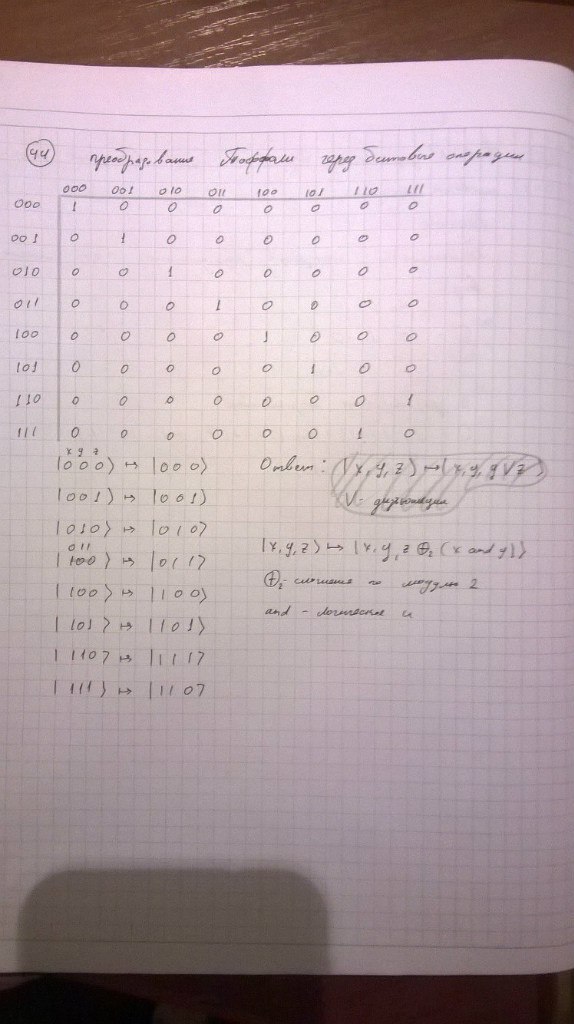 44 преобразование Тоффоли через битовые операции
000 001 010 011 100 101 110 111
000 1 0 0 0 0 0 0 0
001 0 1 0 0 0 0 0 0
010 0 0 1 0 0 0 0 0
011 0 0 0 1 0 0 0 0
100 0 0 0 0 1 0 0 0
101 0 0 0 0 0 1 0 0
110 0 0 0 0 0 0 0 1
111 0 0 0 0 0 0 1 0
x y z
|000⟩ ↦ |000⟩
|001⟩ ↦ |001⟩
|010⟩ ↦ |010⟩
011
|100⟩ ↦ |011⟩
|100⟩ ↦ |100⟩
|101⟩ ↦ |101⟩
|110⟩ ↦ |111⟩
|111⟩ ↦ |110⟩
Ответ: |x,y,z⟩ ↦ |x,y,y∨z⟩
∨ - дизъюнкция
|x,y,z⟩ ↦ |x,y,z ⊕₂ (x and y)⟩
⊕₂ - сложение по модулю 2
and - логическое и